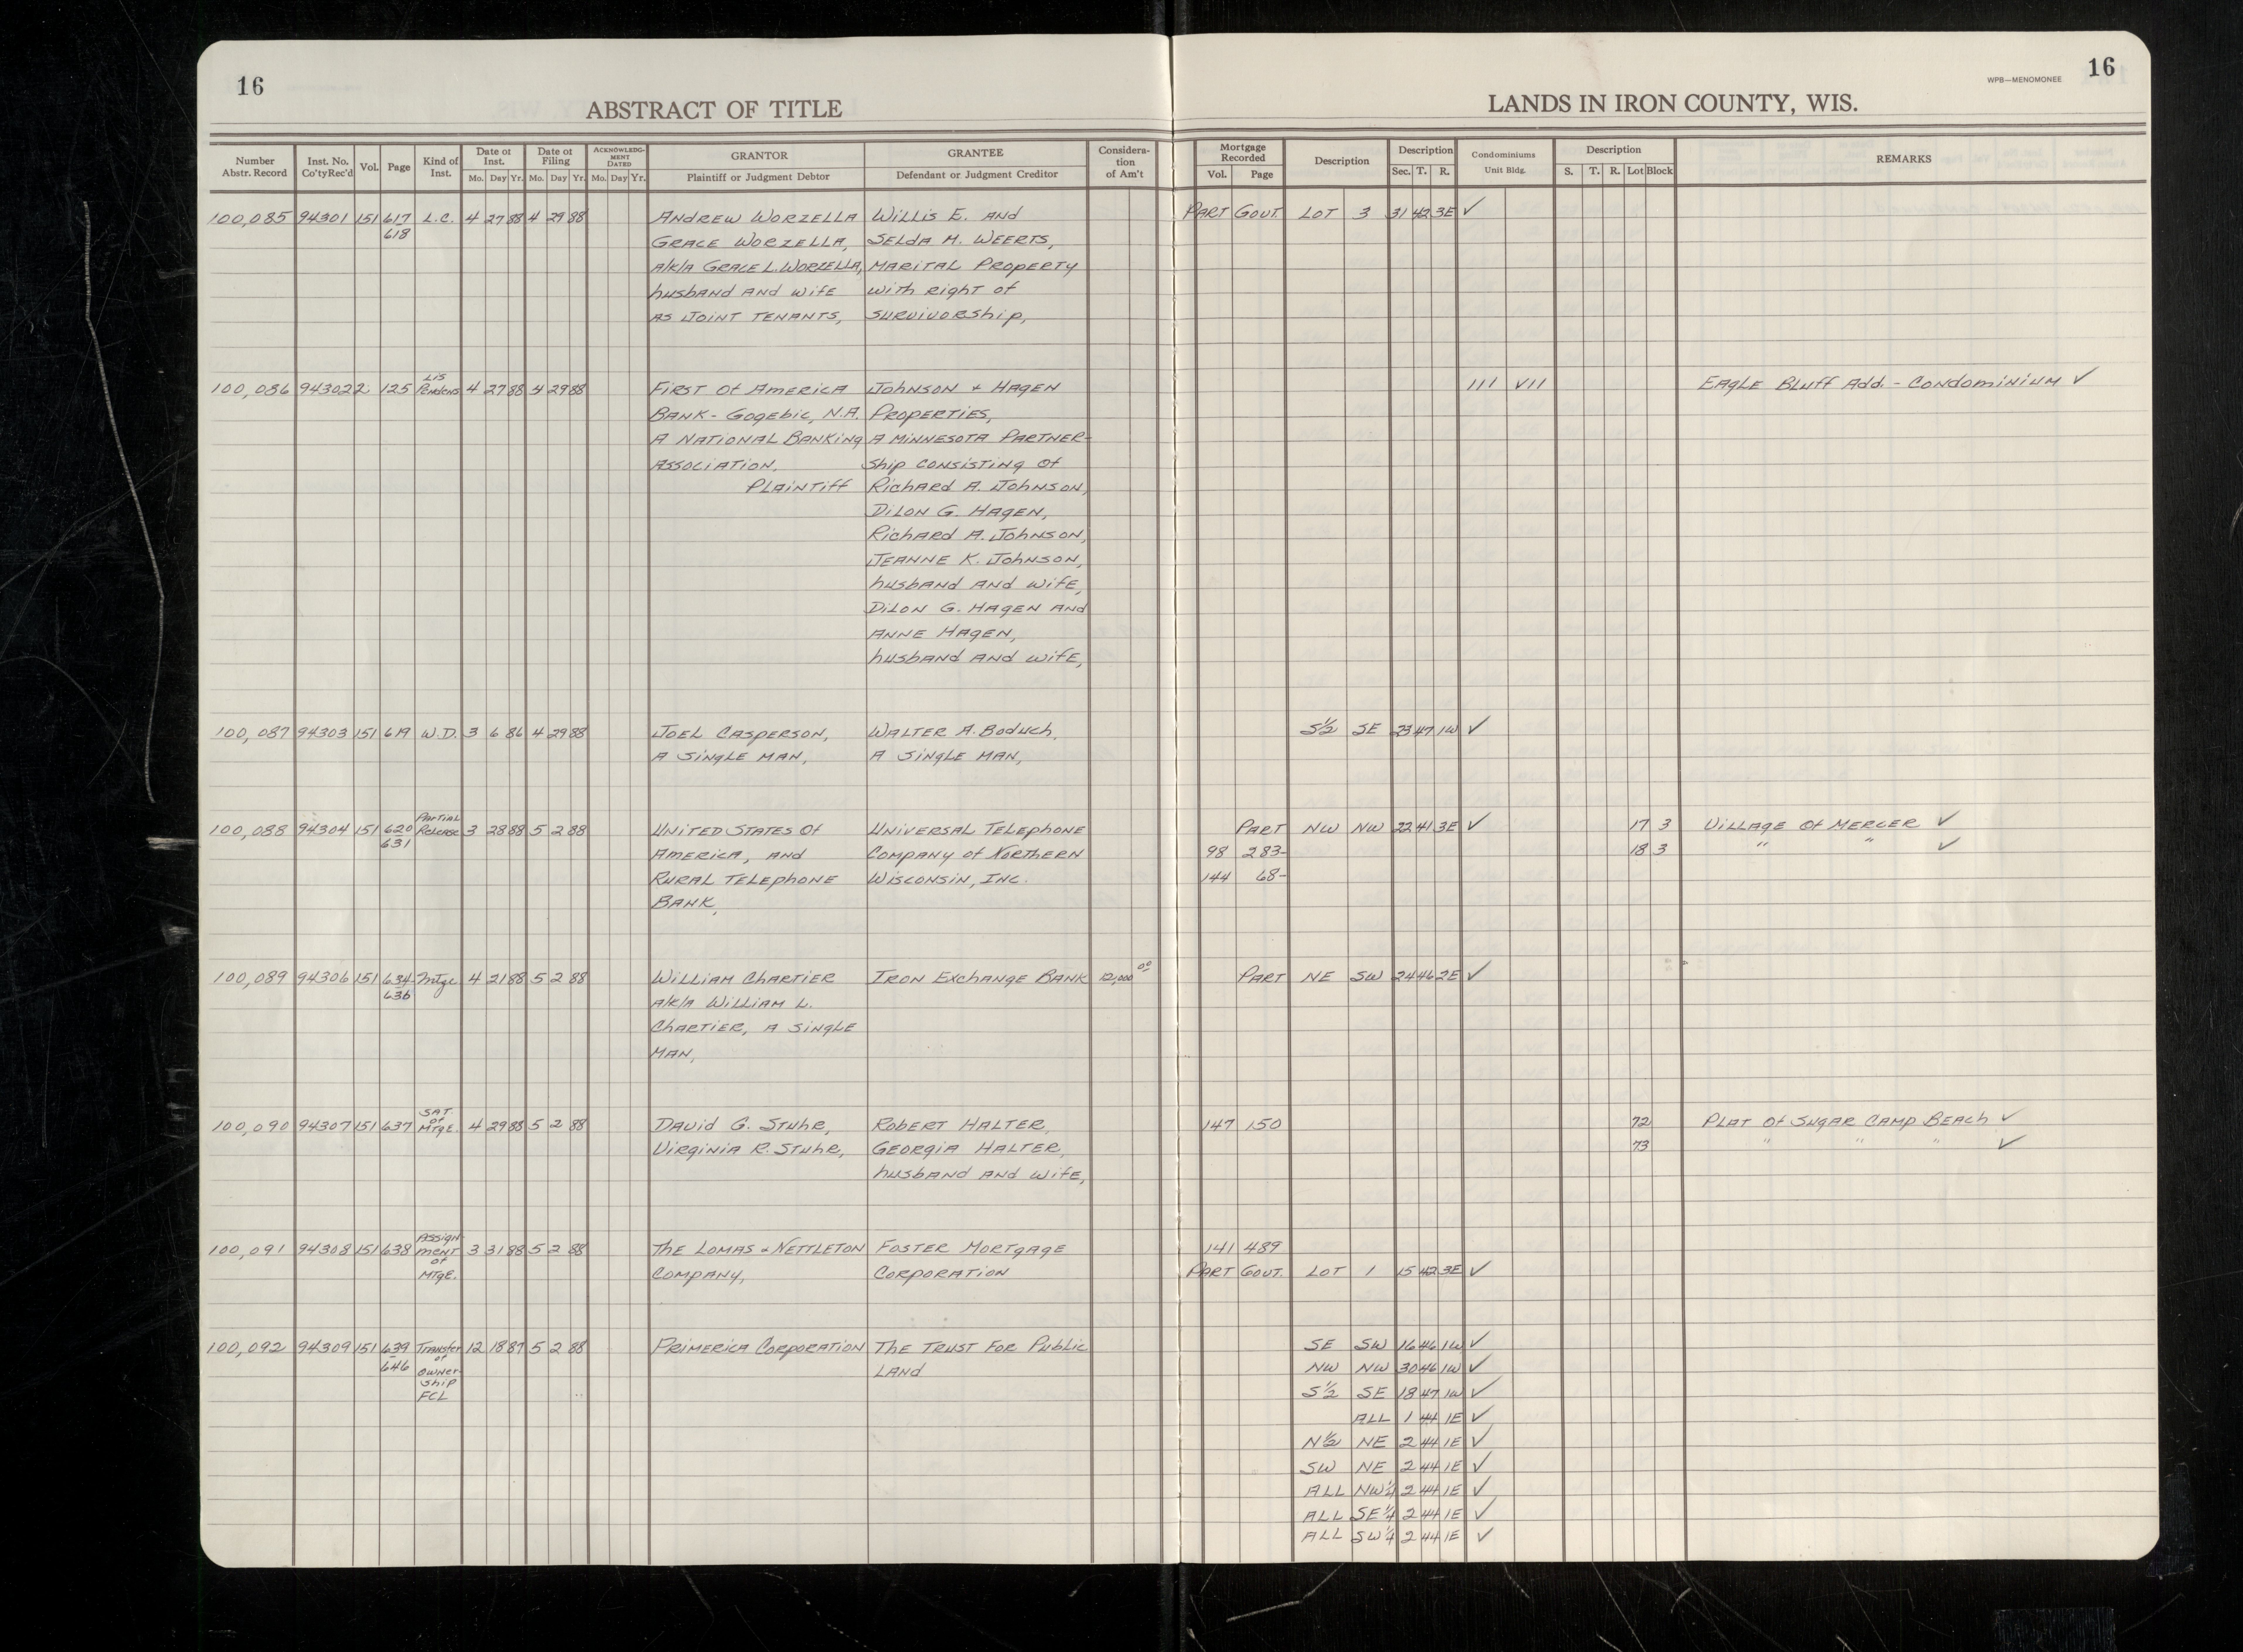 16
ABSTRACT OF TITLE
Number Abstr. Record | Inst. No. Co'ty Rec'd | Vol. | Page | Kind of Inst. | Date of Inst. Mo. Day Yr. | Date of Filing Mo. Day Yr. | ACKNOWLEDGMENT DATED Mo. Day Yr. | GRANTOR Plaintiff or Judgment Debtor | GRANTEE Defendant or Judgment Creditor | Consideration of Am't
LANDS IN IRON COUNTY, WIS.
WPB—MENOMONEE
16
Mortgage Recorded Vol. Page | Description | Description Sec. T. R. | Condominiums Unit Bldg. | Description S. T. R. Lot Block | REMARKS
100,085 94301 151 617 L.C. 4 27 88 4 29 88 ANDREW WORZELLA WILLIS E. AND PART GOVT. LOT 3 31 42 3E ✓
618 GRACE WORZELLA, SELDA M. WEERTS,
A/K/A GRACE L. WORZELLA, MARITAL PROPERTY
husband AND wife with right of
AS JOINT TENANTS, SURVIVORShip,
100,086 94302 2 125 Lis Pendens 4 27 88 4 29 88 FIRST Of AMERICA JOHNSON + HAGEN III VII EAGLE Bluff Add. - CONDOMINIUM ✓
BANK - GOGEBIC, N.A. PROPERTIES,
A NATIONAL BANKING A MINNESOTA PARTNER-
ASSOCIATION, Ship CONSISTING Of
PLAINTIFF Richard A. JOHNSON,
DILON G. HAGEN,
Richard A. JOHNSON,
JEANNE K. JOHNSON,
husband AND wife,
DILON G. HAGEN AND
ANNE HAGEN,
husband AND wife,
100,087 94303 151 619 W.D. 3 6 86 4 29 88 JOEL CASPERSON, WALTER A. Boduch, S½ SE 23 47 1W ✓
A SINGLE MAN, A SINGLE MAN,
100,088 94304 151 620 Partial Release 3 28 88 5 2 88 UNITED STATES Of UNIVERSAL TELEPHONE PART NW NW 22 41 3E ✓ 17 3 VILLAGE Of MERCER ✓
631 AMERICA, AND COMPANY Of NORTHERN 98 283- 18 3 " " ✓
RURAL TELEPHONE WISCONSIN, INC. 144 68-
BANK,
100,089 94306 151 634 Mtge. 4 21 88 5 2 88 WILLIAM CHARTIER IRON EXCHANGE BANK 12,000 00 PART NE SW 24 46 2E ✓
636 A/K/A WILLIAM L.
CHARTIER, A SINGLE
MAN,
100,090 94307 151 637 SAT. of MTGE. 4 29 88 5 2 88 DAVID G. STUHR, ROBERT HALTER, 147 150 72 PLAT Of SUGAR CAMP BEACH ✓
VIRGINIA R. STUHR, GEORGIA HALTER, 73 " " " ✓
husband AND wife,
100,091 94308 151 638 ASSIGNMENT of MTGE. 3 31 88 5 2 88 THE LOMAS & NETTLETON FOSTER MORTGAGE 141 489
COMPANY, CORPORATION PART GOVT. LOT 1 15 42 3E ✓
100,092 94309 151 639 Transfer of Ownership FCL 12 18 87 5 2 88 PRIMERICA CORPORATION THE TRUST FOR Public SE SW 16 46 1W ✓
646 LAND NW NW 30 46 1W ✓
S½ SE 18 47 1W ✓
ALL 1 44 1E ✓
N½ NE 2 44 1E ✓
SW NE 2 44 1E ✓
ALL NW¼ 2 44 1E ✓
ALL SE¼ 2 44 1E ✓
ALL SW¼ 2 44 1E ✓